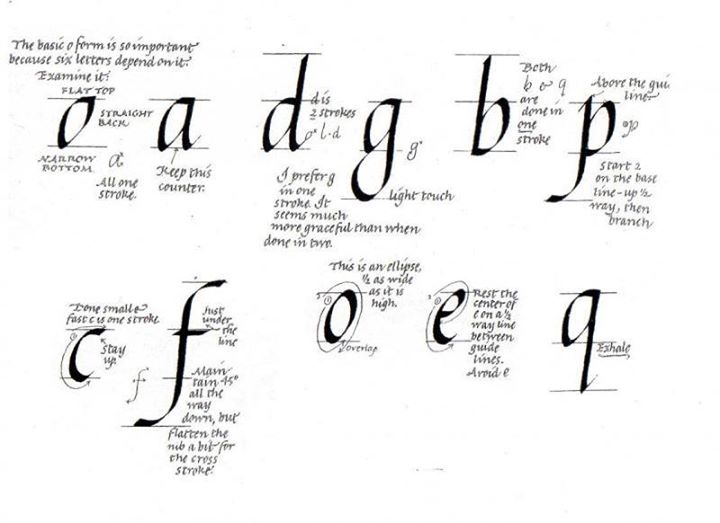 The basic o form is so important
because six letters depend on it.
Examine it:
FLAT TOP
STRAIGHT
BACK
NARROW
BOTTOM.
o
a
All one
stroke.
a
Keep this
counter.
d
d is
2 strokes
o l · d
I prefer g
in one
stroke. It
seems much
more graceful than when
done in two.
g
g
light touch
b
Both
b & q
are
done in
one
stroke
p
Above the gui
line
p
start 2
on the base
line - up ½
way, then
branch
Done small &
fast c is one stroke
c
Stay
up.
f
f
Just
under
the
line
Main
tain 45°
all the
way
down, but
flatten the
nib a bit for
the cross
stroke.
This is an ellipse,
½ as wide
as it is
high.
o
overlap
e
Rest the
center of
e on a ½
way line
between
guide
lines.
Avoid e
q
Exhale